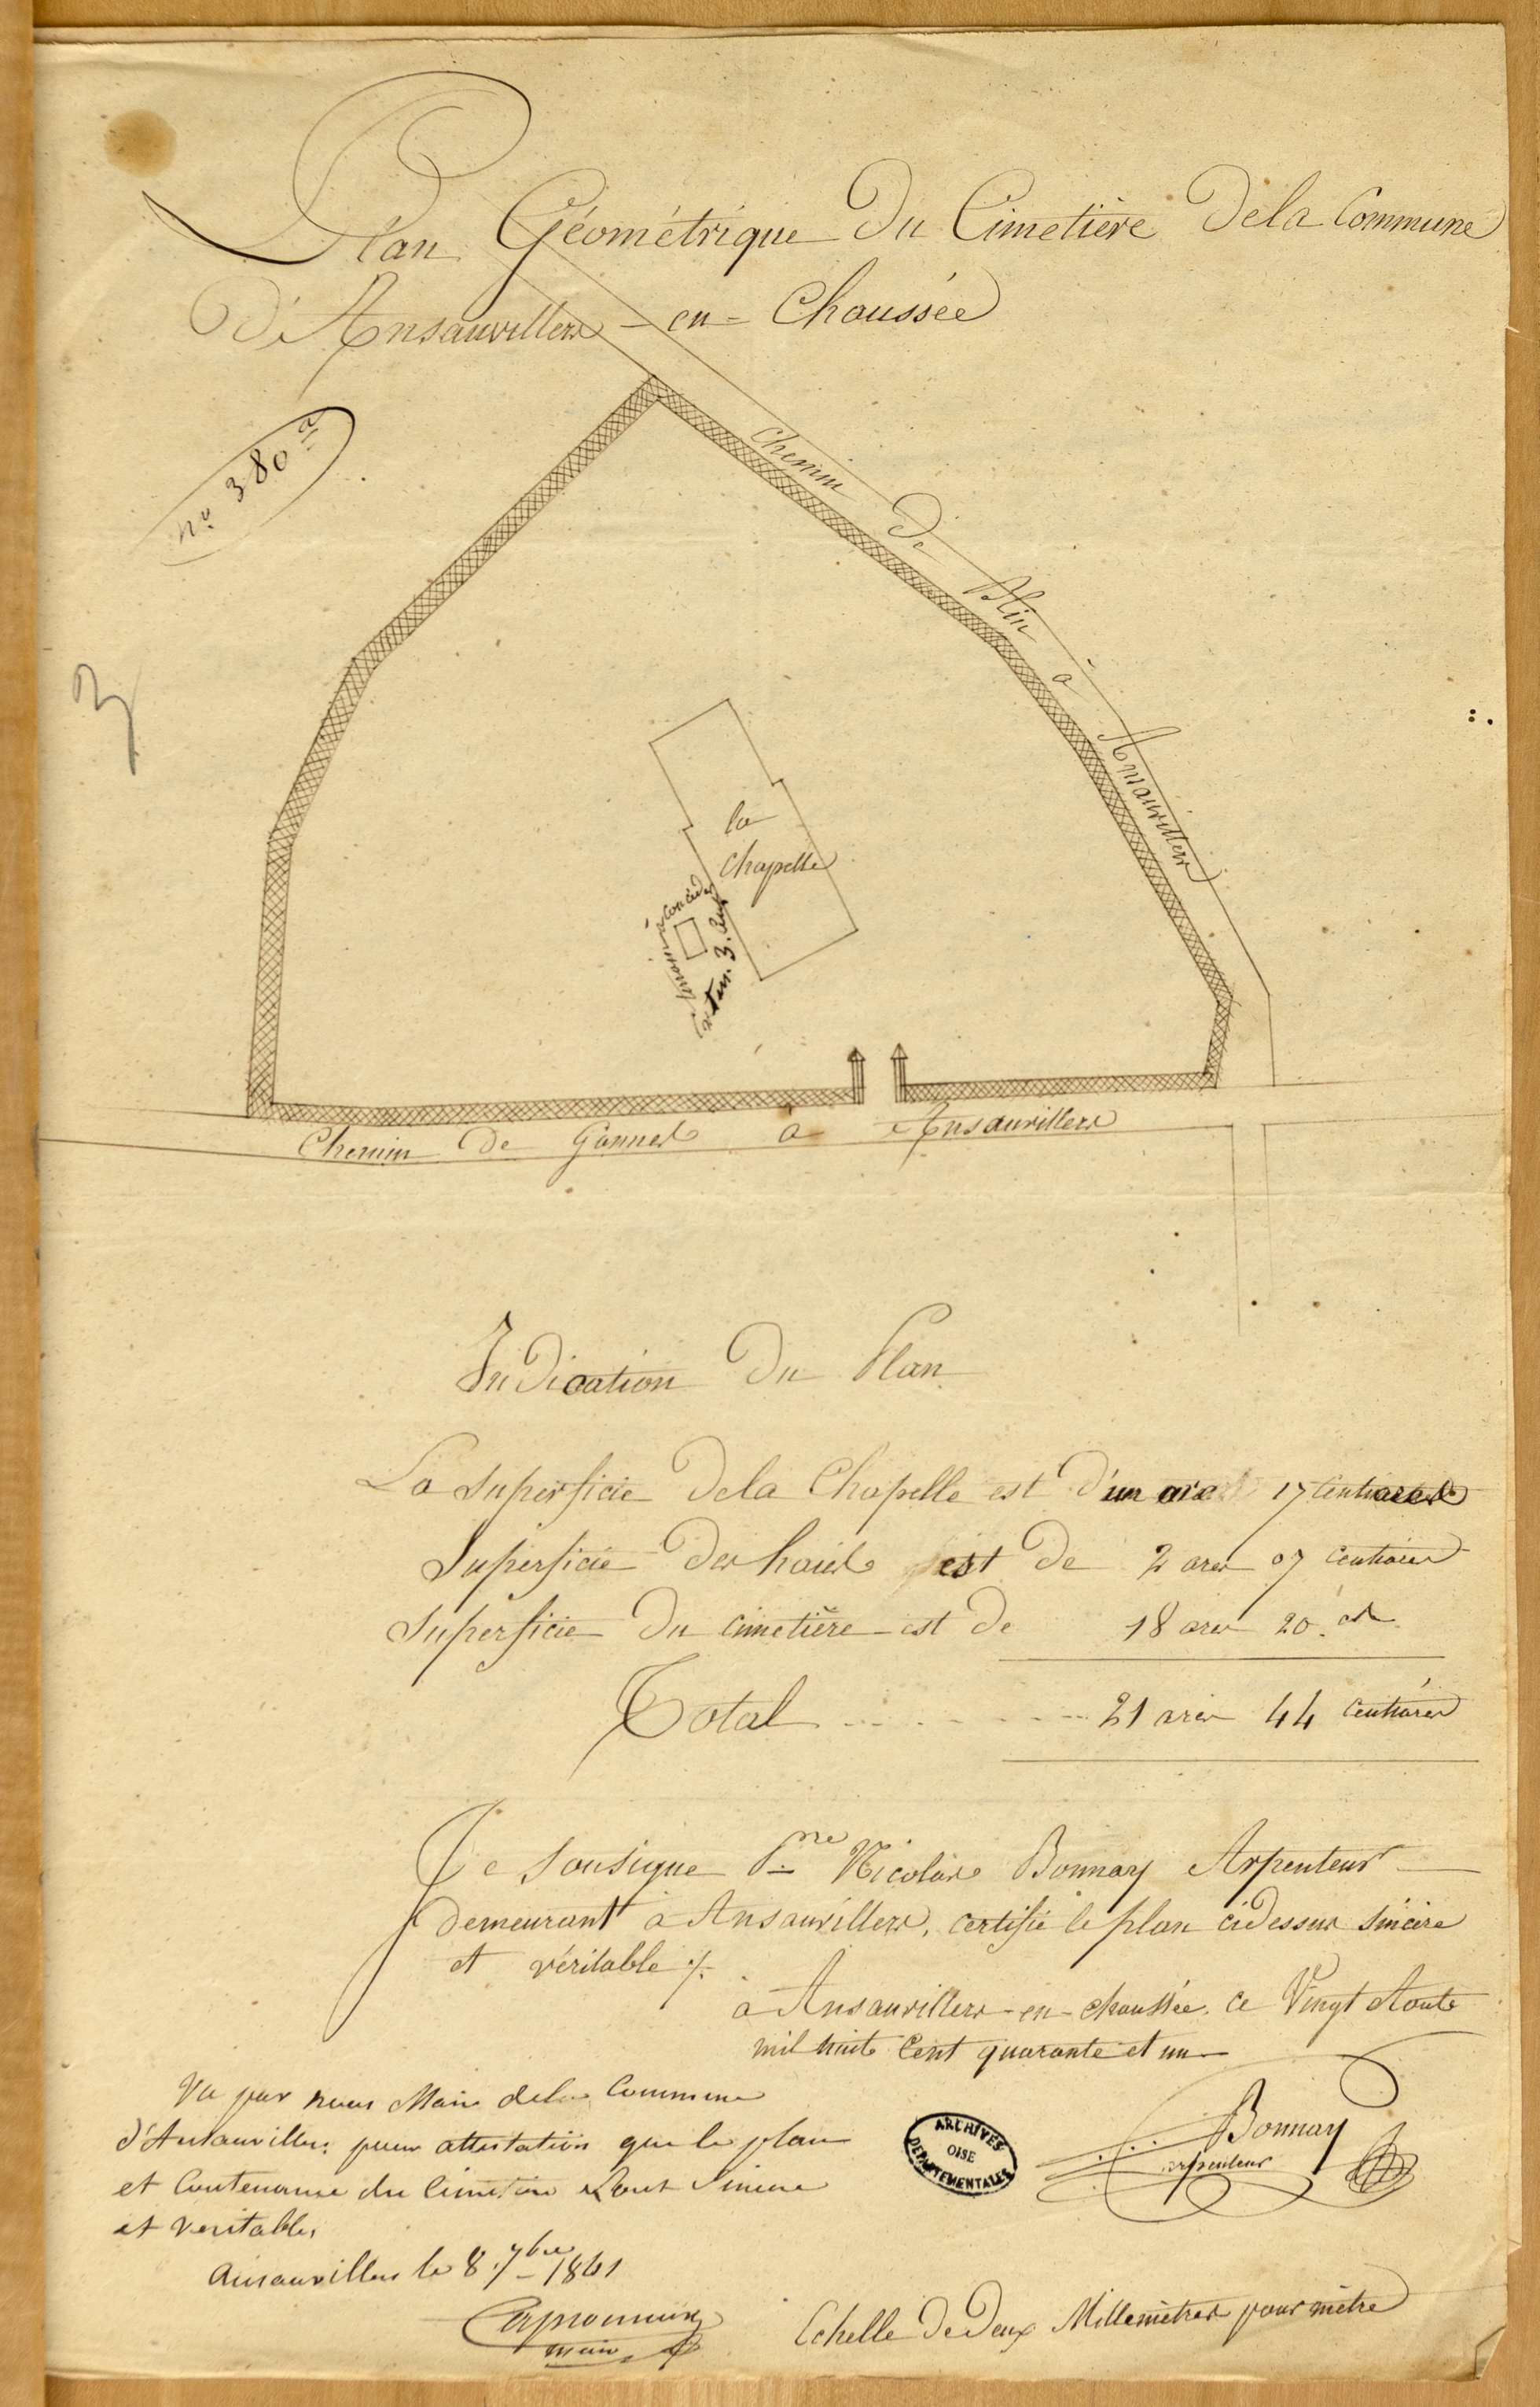 Plan Géométrique Du Cimetière Dela Commune
D'Ansauvillers - en - Chaussée
n.º 380
Chemin De Blin à Ansauvillers
la
chapelle
terrain à concéder
3.
Chemin De Gannes à Ansauvillers
Indication Du Plan
La Superficie Dela Chapelle est D'un are 17 Centiares
Superficie Des haies est De 2 ares 07 centiares
Superficie Du cimetière est De 18 ares 20 ces
Total .......... 21 ares 44 Centiares
Je Sousigne P.re Nicolas Bonnay Arpenteur
demeurant à Ansauvillers, certifie le plan cidessus sincère
et véritable ./.
à Ansauvillers-en-chaussée. ce Vingt Aoute
mil huit Cent quarante et un
Bonnay
arpenteur
Vu par nous Maire dela Commune
d'Ansauvillers pour attestation que le plan
et Contenance du Cimetière sont Sincere
et veritables
Ansauvillers le 8 7bre 1841
maire
ARCHIVES
OISE
DÉPARTEMENTALES
Echelle De Deux Millemètres pour mètre